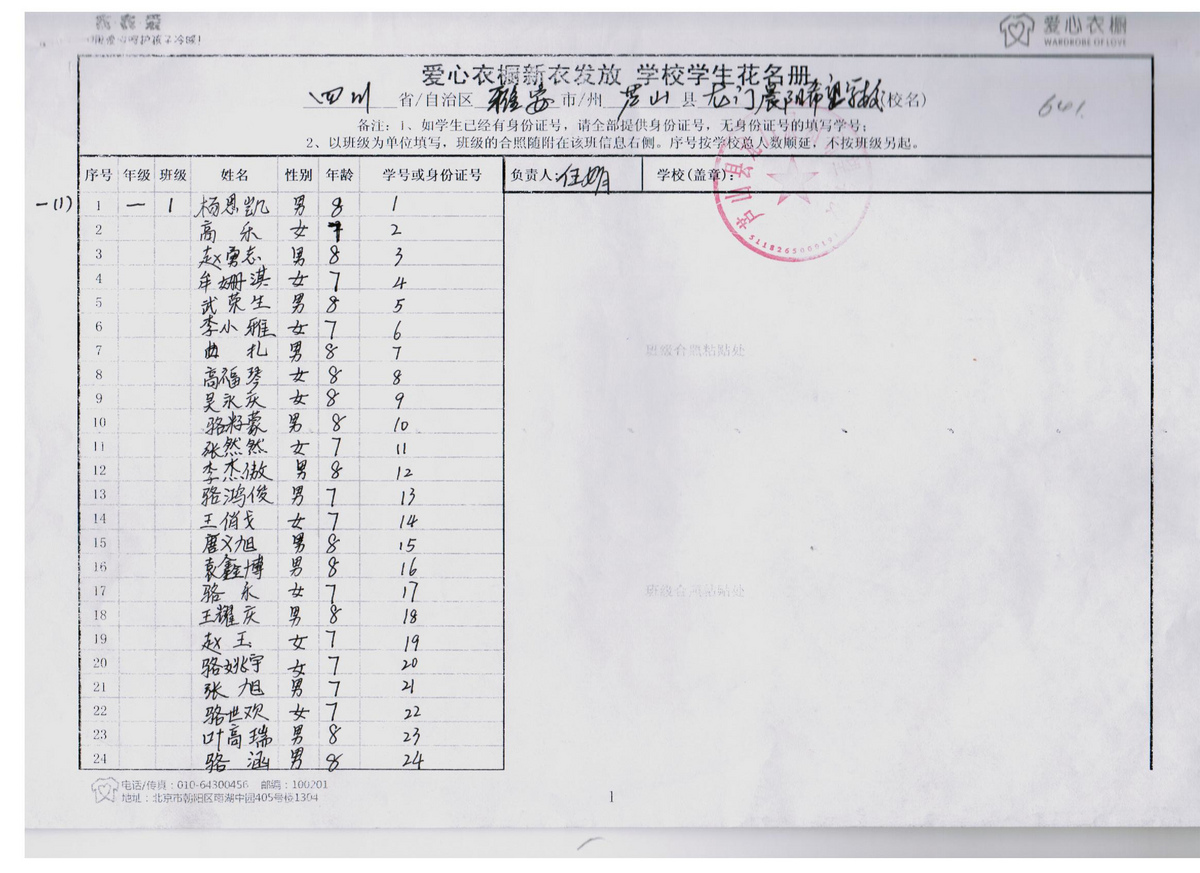 爱心衣橱
WARDROBE OF LOVE
爱心衣橱新衣发放 学校学生花名册
四川 省/自治区 雅安 市/州 芦山 县 龙门晨阳希望学校(校名)
641
备注：1、如学生已经有身份证号，请全部提供身份证号，无身份证号的填写学号；
2、以班级为单位填写，班级的合照随附在该班信息右侧。序号按学校总人数顺延，不按班级另起。
序号 年级 班级 姓名 性别 年龄 学号或身份证号 负责人: 任 学校(盖章):
芦山县
一(1) 1 一 1 杨恩凯 男 8 1
2 高乐 女 7 2
3 赵勇志 男 8 3
4 牟姗淇 女 7 4
5 武荣生 男 8 5
6 李小雅 女 7 6
7 曲扎 男 8 7
班级合照粘贴处
8 高福琴 女 8 8
9 吴永庆 女 8 9
10 骆籽蒙 男 8 10
11 张然然 女 7 11
12 李杰傲 男 8 12
13 骆鸿俊 男 7 13
14 王俏戈 女 7 14
15 唐义旭 男 8 15
16 袁鑫博 男 8 16
17 骆永 女 7 17
班级合照粘贴处
18 王耀庆 男 8 18
19 赵玉 女 7 19
20 骆姚宇 女 7 20
21 张旭 男 7 21
22 骆世欢 女 7 22
23 叶高瑞 男 8 23
24 骆涵 男 8 24
电话/传真：010-64300456 邮编：100201
地址：北京市朝阳区南湖中园405号楼1304
1